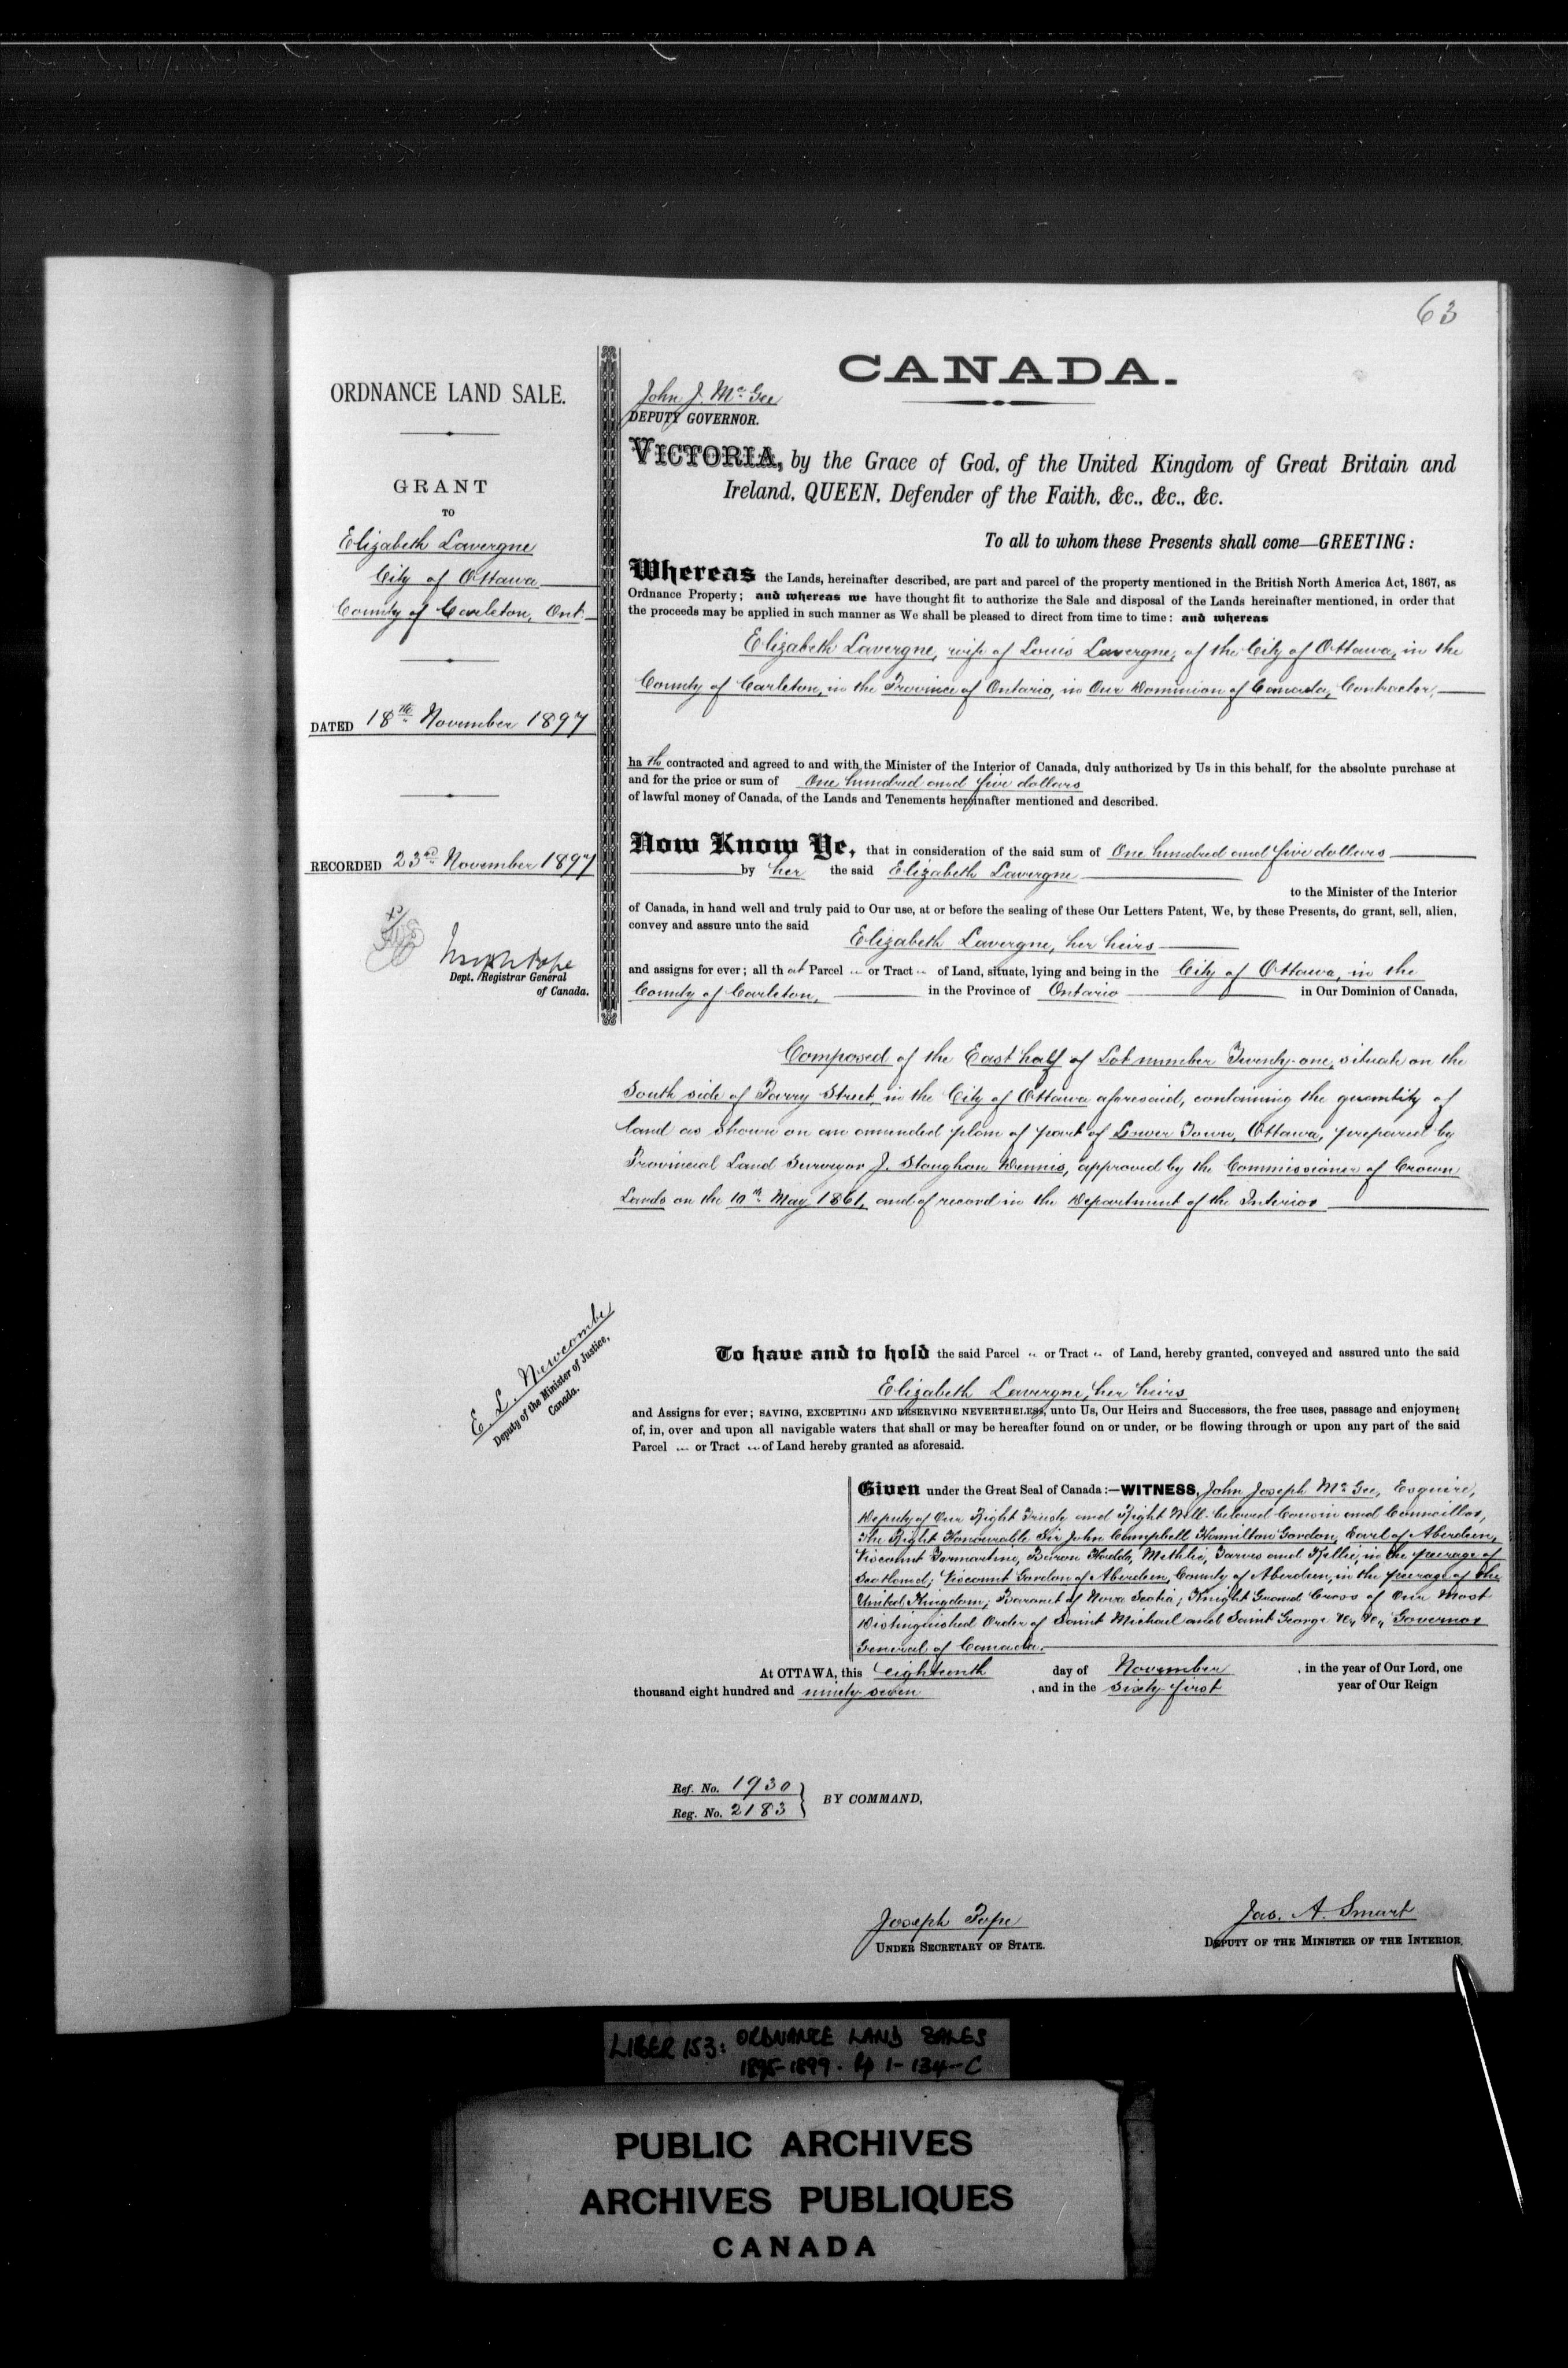 63
CANADA.
ORDNANCE LAND SALE.
GRANT
TO
Elizabeth Lavergne
City of Ottawa
County of Carleton, Ont.
DATED 18th November 1897
RECORDED 23rd November 1897
Joseph Pope
Dept. Registrar General
of Canada.
John J. McGee
DEPUTY GOVERNOR.
VICTORIA, by the Grace of God, of the United Kingdom of Great Britain and
Ireland, QUEEN, Defender of the Faith, &c., &c., &c.
To all to whom these Presents shall come—GREETING:
Whereas the Lands, hereinafter described, are part and parcel of the property mentioned in the British North America Act, 1867, as
Ordnance Property; and whereas we have thought fit to authorize the Sale and disposal of the Lands hereinafter mentioned, in order that
the proceeds may be applied in such manner as We shall be pleased to direct from time to time: and whereas
Elizabeth Lavergne, wife of Louis Lavergne, of the City of Ottawa, in the
County of Carleton, in the Province of Ontario, in Our Dominion of Canada, Contractor,
hath contracted and agreed to and with the Minister of the Interior of Canada, duly authorized by Us in this behalf, for the absolute purchase at
and for the price or sum of One hundred and five dollars
of lawful money of Canada, of the Lands and Tenements hereinafter mentioned and described.
Now Know Ye, that in consideration of the said sum of One hundred and five dollars
by her the said Elizabeth Lavergne
to the Minister of the Interior
of Canada, in hand well and truly paid to Our use, at or before the sealing of these Our Letters Patent, We, by these Presents, do grant, sell, alien,
convey and assure unto the said
Elizabeth Lavergne, her heirs
and assigns for ever; all that Parcel or Tract of Land, situate, lying and being in the City of Ottawa, in the
County of Carleton, in the Province of Ontario in Our Dominion of Canada,
Composed of the East half of Lot number Twenty-one, situate on the
South side of Parry Street, in the City of Ottawa aforesaid, containing the quantity of
land as shown on an amended plan of part of Lower Town, Ottawa, prepared by
Provincial Land Surveyor J. Stoughton Dennis, approved by the Commissioner of Crown
Lands on the 10th May 1861, and of record in the Department of the Interior
E. L. Newcombe
Deputy of the Minister of Justice,
Canada.
To have and to hold the said Parcel or Tract of Land, hereby granted, conveyed and assured unto the said
Elizabeth Lavergne, her heirs
and Assigns for ever; SAVING, EXCEPTING AND RESERVING NEVERTHELESS, unto Us, Our Heirs and Successors, the free uses, passage and enjoyment
of, in, over and upon all navigable waters that shall or may be hereafter found on or under, or be flowing through or upon any part of the said
Parcel or Tract of Land hereby granted as aforesaid.
Given under the Great Seal of Canada:—WITNESS, John Joseph McGee, Esquire,
Deputy of Our Right Trusty and Right Well-beloved Cousin and Councillor,
The Right Honourable Sir John Campbell Hamilton Gordon, Earl of Aberdeen,
Viscount Formartine, Baron Haddo, Methlic, Tarves and Kellie, in the peerage of
Scotland; Viscount Gordon of Aberdeen, County of Aberdeen, in the peerage of the
United Kingdom; Baronet of Nova Scotia; Knight Grand Cross of Our Most
Distinguished Order of Saint Michael and Saint George &c., &c., Governor
General of Canada.
At OTTAWA, this eighteenth day of November, in the year of Our Lord, one
thousand eight hundred and ninety-seven, and in the sixty-first year of Our Reign
Ref. No. 1930
Reg. No. 2183
BY COMMAND,
Joseph Pope
UNDER SECRETARY OF STATE.
Jas. A. Smart
DEPUTY OF THE MINISTER OF THE INTERIOR.
LIBER 153: ORDNANCE LAND SALES
1895-1899. 1-134-C
PUBLIC ARCHIVES
ARCHIVES PUBLIQUES
CANADA